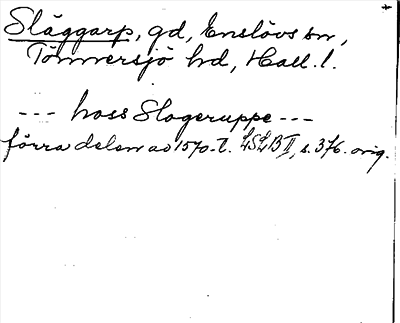 Släggarp, gd, Enslövs sn,
Tönnersjö hd, Hall. l.
--- hoss Slogeruppe ---
förra delen av 1570-t. LSLB II, s. 376. orig.